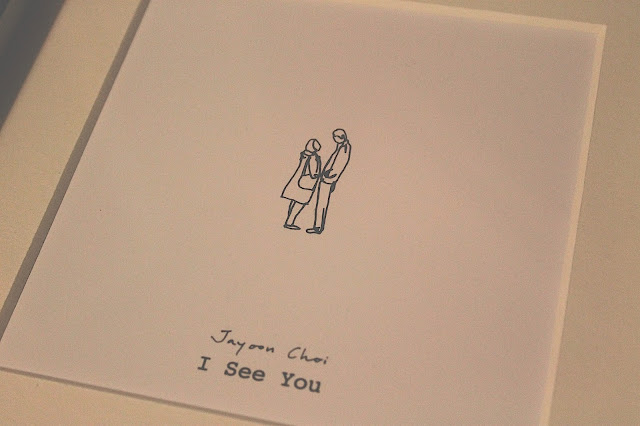 Jayoon Choi
I See You